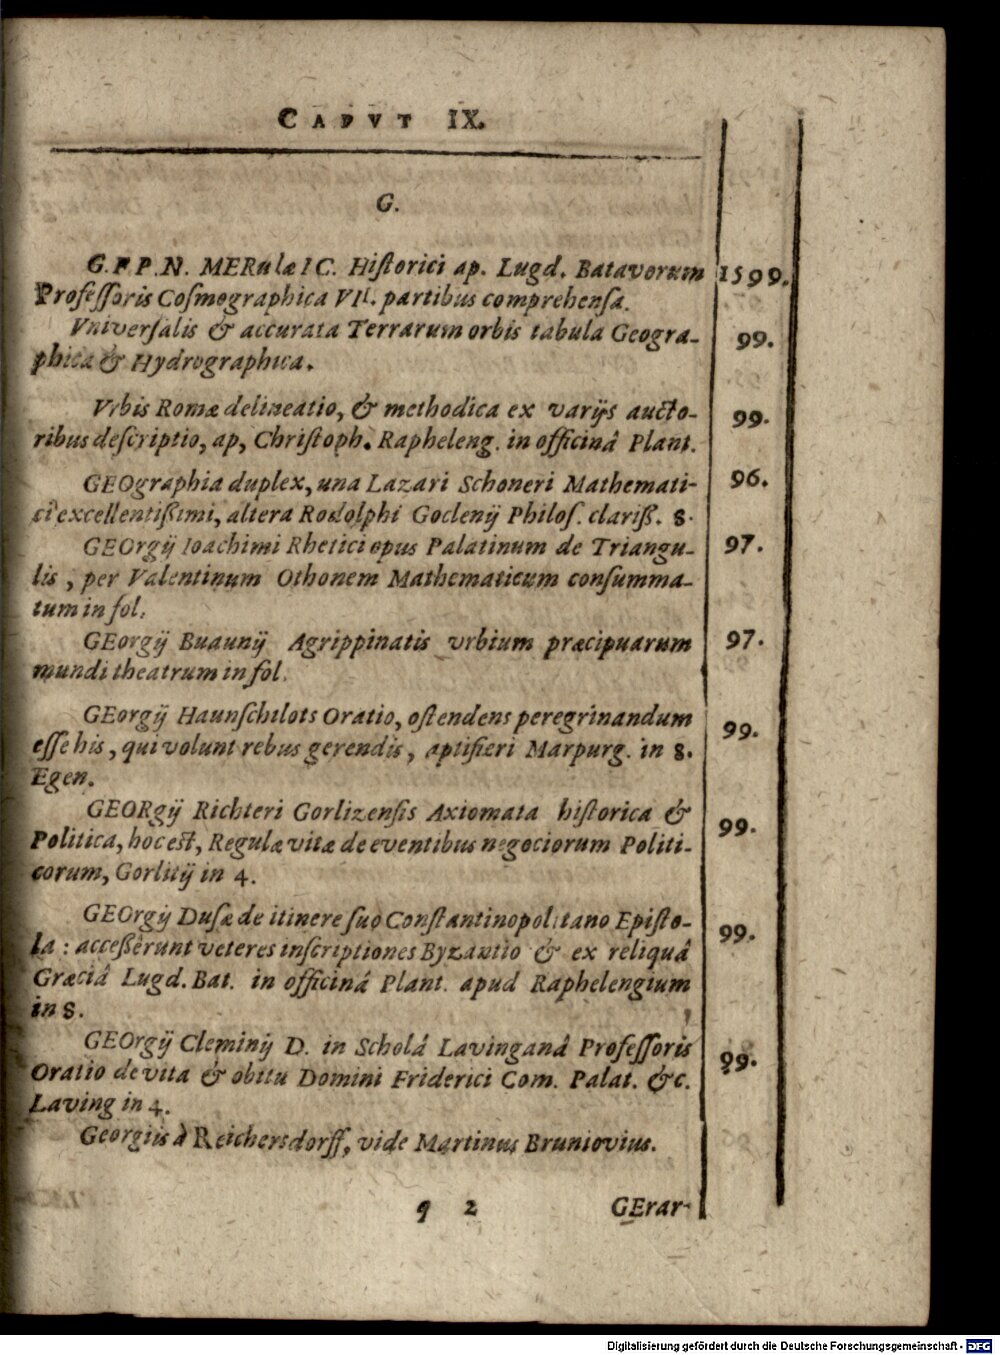 CAPVT IX.
G.
G. F P. N. MERulæ IC. Historici ap. Lugd. Batavorum 1599.
Professoris Cosmographica VII. partibus comprehensa.
Vniversalis & accurata Terrarum orbis tabula Geogra- 99.
phica & Hydrographica.
Vrbis Romæ delineatio, & methodica ex varijs aucto- 99.
ribus descriptio, ap, Christoph. Rapheleng. in officinâ Plant.
GEOgraphia duplex, una Lazari Schoneri Mathemati- 96.
ci excellentißimi, altera Rodolphi Goclenij Philos. clariß. 8.
GEOrgij Ioachimi Rhetici opus Palatinum de Triangu- 97.
lis, per Valentinum Othonem Mathematicum consumma-
tum in fol.
GEorgij Buaunij Agrippinatis vrbium præcipuarum 97.
mundi theatrum in fol.
GEorgij Haunschilots Oratio, ostendens peregrinandum 99.
esse his, qui volunt rebus gerendis, aptifieri Marpurg. in 8.
Egen.
GEORgij Richteri Gorlizensis Axiomata historica &
Politica, hoc est, Regulæ vitæ de eventibus negociorum Politi- 99.
corum, Gorlitij in 4.
GEOrgij Dusæ de itinere suo Constantinopolitano Episto- 99.
la : acceßerunt veteres inscriptiones Byzantio & ex reliquâ
Græciâ Lugd. Bat. in officinâ Plant. apud Raphelengium
in 8.
GEOrgij Cleminij D. in Scholâ Lavinganâ Professoris 99.
Oratio de vita & obitu Domini Friderici Com. Palat. &c.
Laving in 4.
Georgiis à Reichersdorff, vide Martinus Bruniovius.
q 2 GErar-
Digitalisierung gefördert durch die Deutsche Forschungsgemeinschaft - DFG